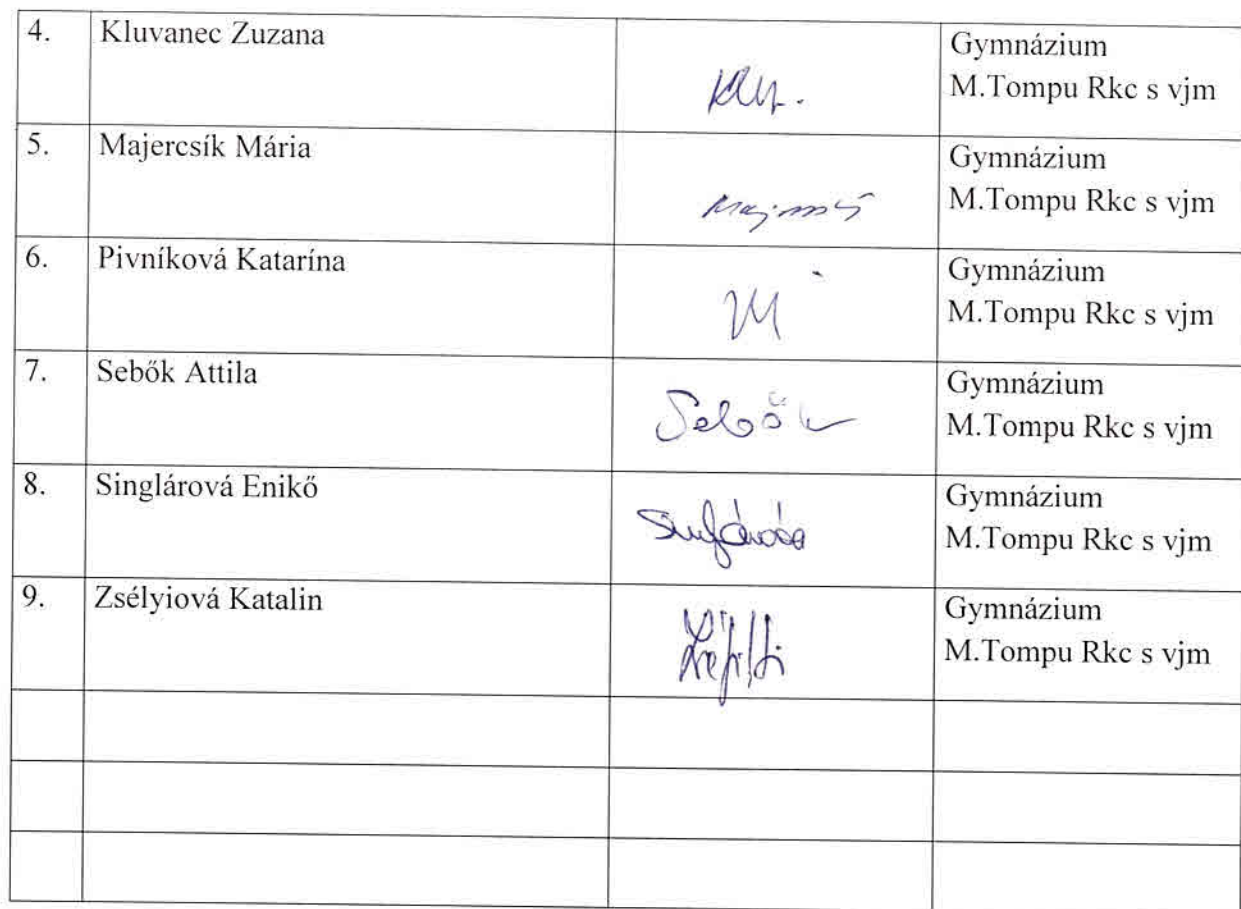 4. Kluvanec Zuzana Gymnázium
M.Tompu Rkc s vjm
5. Majercsík Mária Gymnázium
M.Tompu Rkc s vjm
6. Pivníková Katarína Gymnázium
M.Tompu Rkc s vjm
7. Sebők Attila Gymnázium
Sebők M.Tompu Rkc s vjm
8. Singlárová Enikő Gymnázium
M.Tompu Rkc s vjm
9. Zsélyiová Katalin Gymnázium
M.Tompu Rkc s vjm